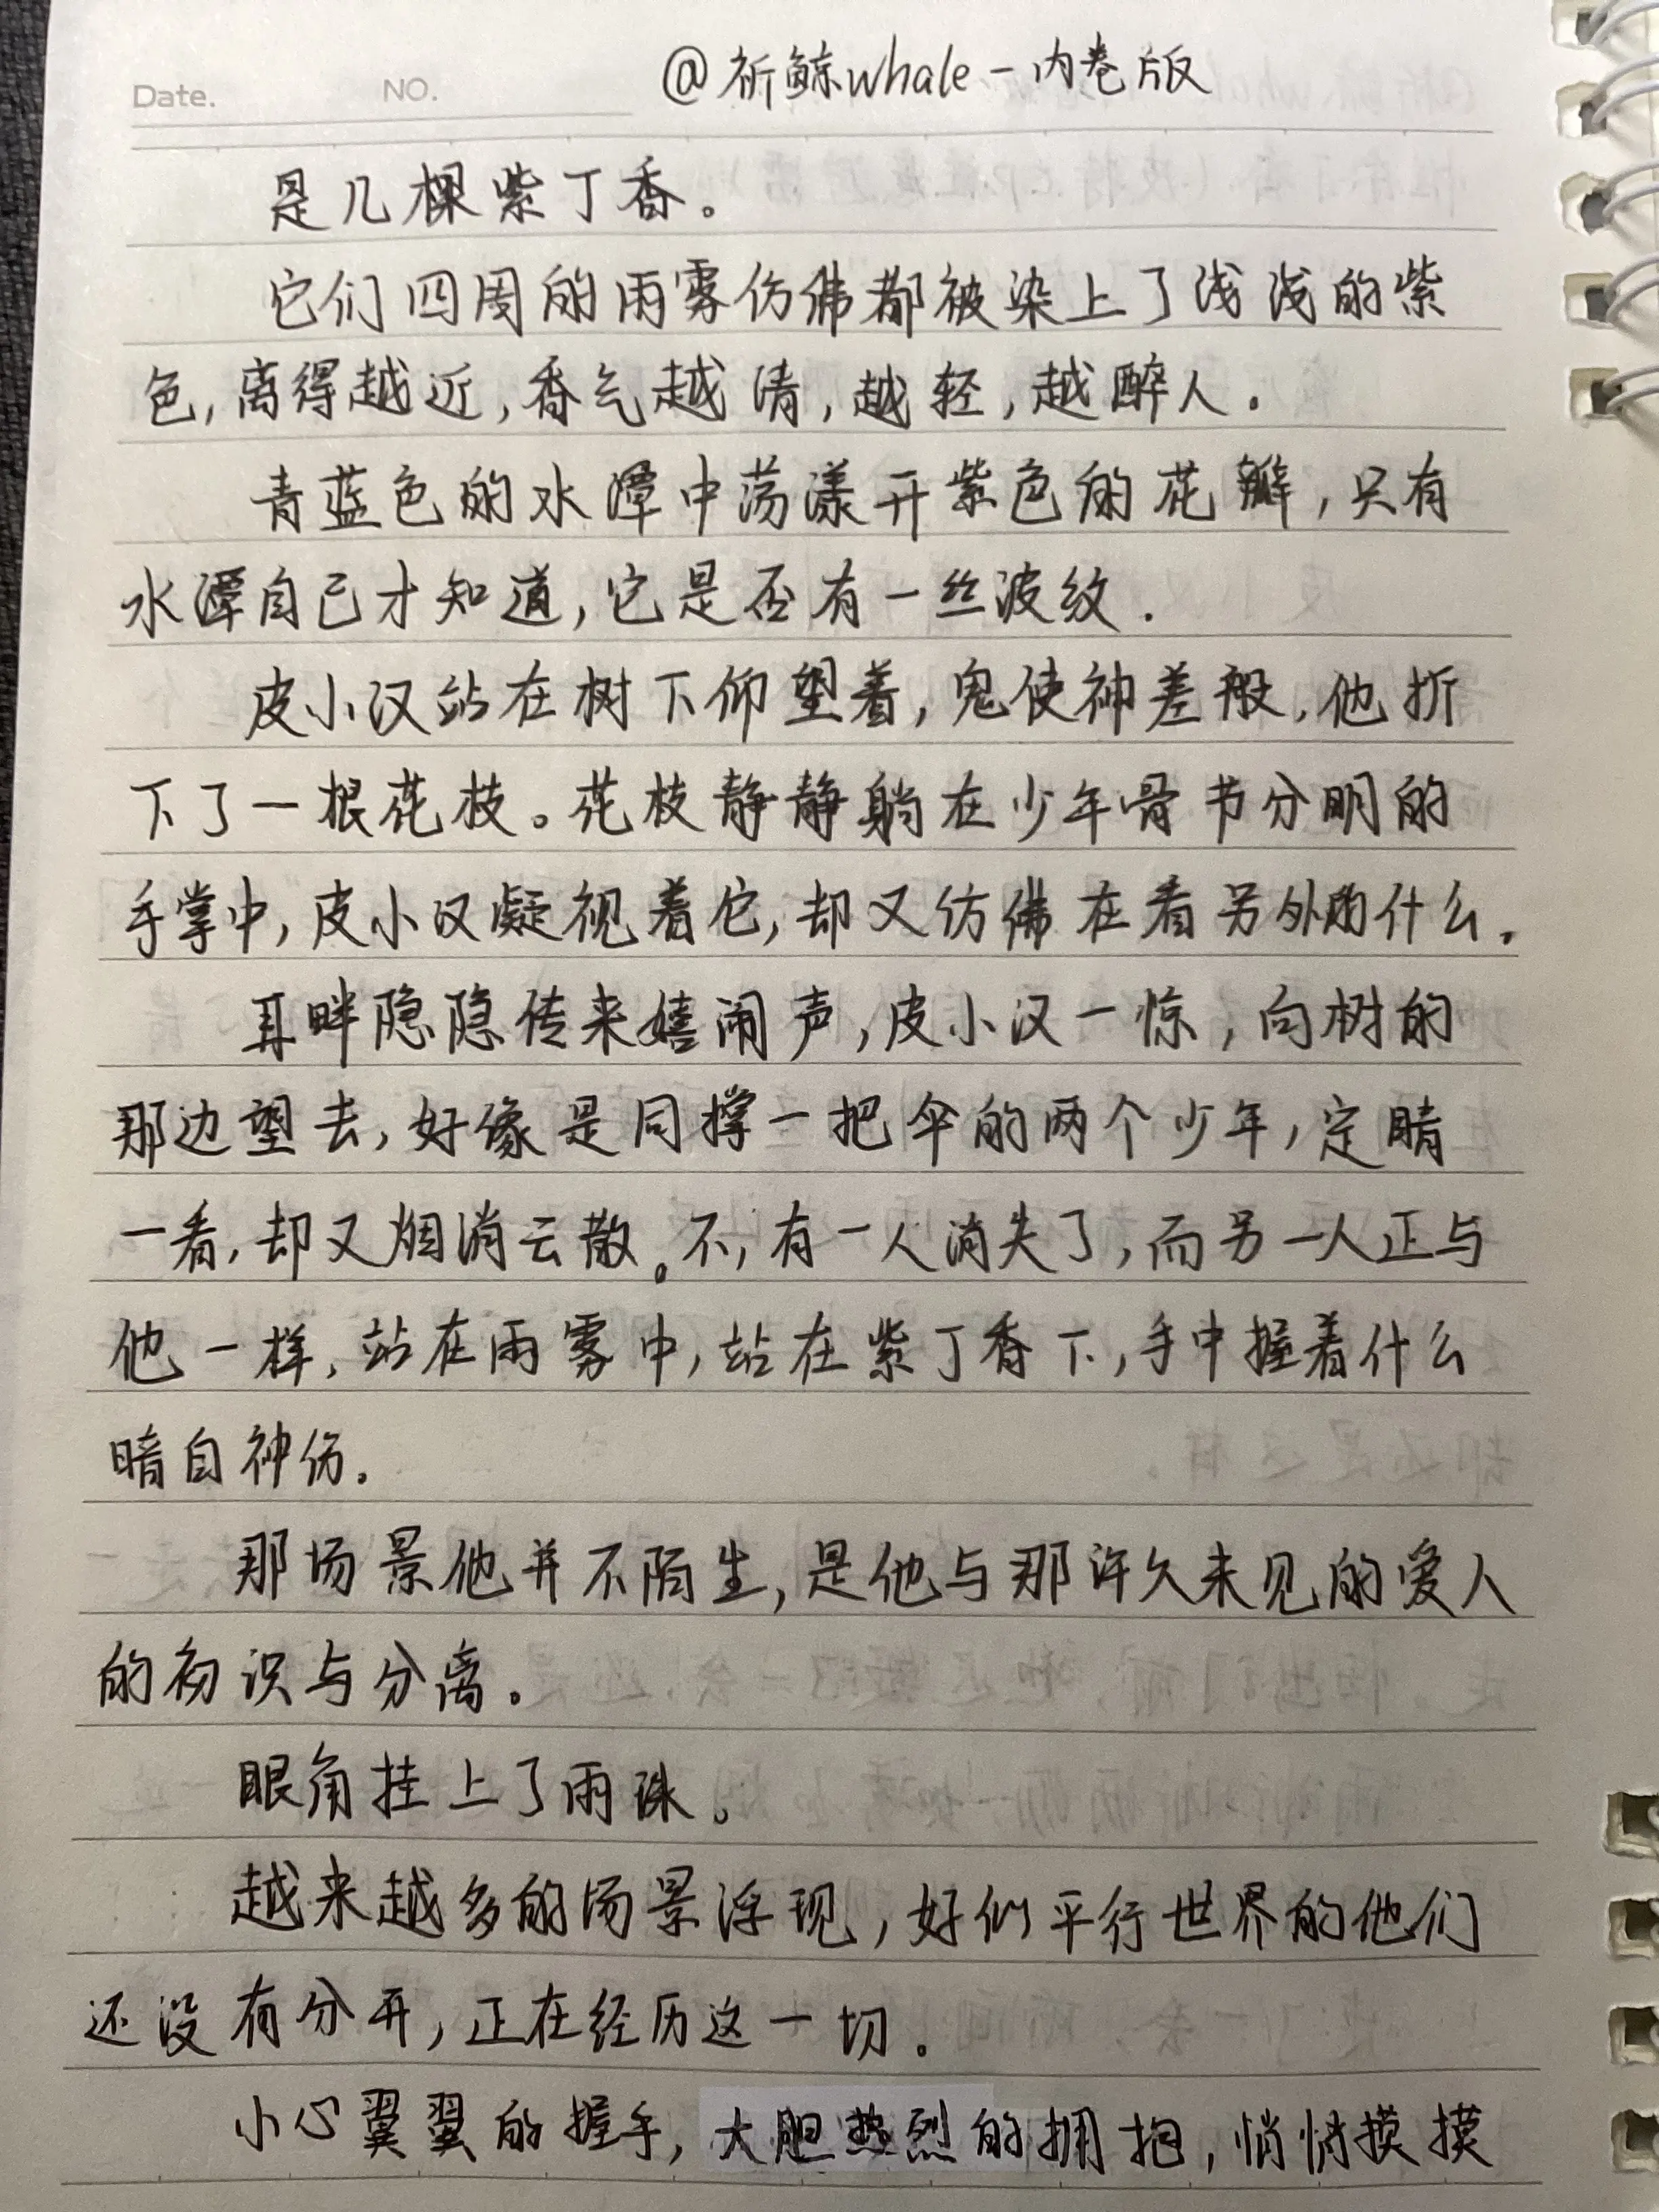 Date. NO. @祈鲸whale－内卷版
是几棵紫丁香。
它们四周的雨雾仿佛都被染上了浅浅的紫
色,离得越近,香气越清,越轻,越醉人.
青蓝色的水潭中荡漾开紫色的花瓣,只有
水潭自己才知道,它是否有一丝波纹.
皮小汉站在树下仰望着,鬼使神差般,他折
下了一根花枝。花枝静静躺在少年骨节分明的
手掌中,皮小汉凝视着它,却又仿佛在看另外的什么.
耳畔隐隐传来嬉闹声,皮小汉一惊,向树的
那边望去,好像是同撑一把伞的两个少年,定睛
一看,却又烟消云散。不,有一人消失了,而另一人正与
他一样,站在雨雾中,站在紫丁香下,手中握着什么
暗自神伤.
那场景他并不陌生,是他与那许久未见的爱人
的初识与分离.
眼角挂上了雨珠。
越来越多的场景浮现,好似平行世界的他们
还没有分开,正在经历这一切.
小心翼翼的握手,大胆热烈的拥抱,悄悄摸摸